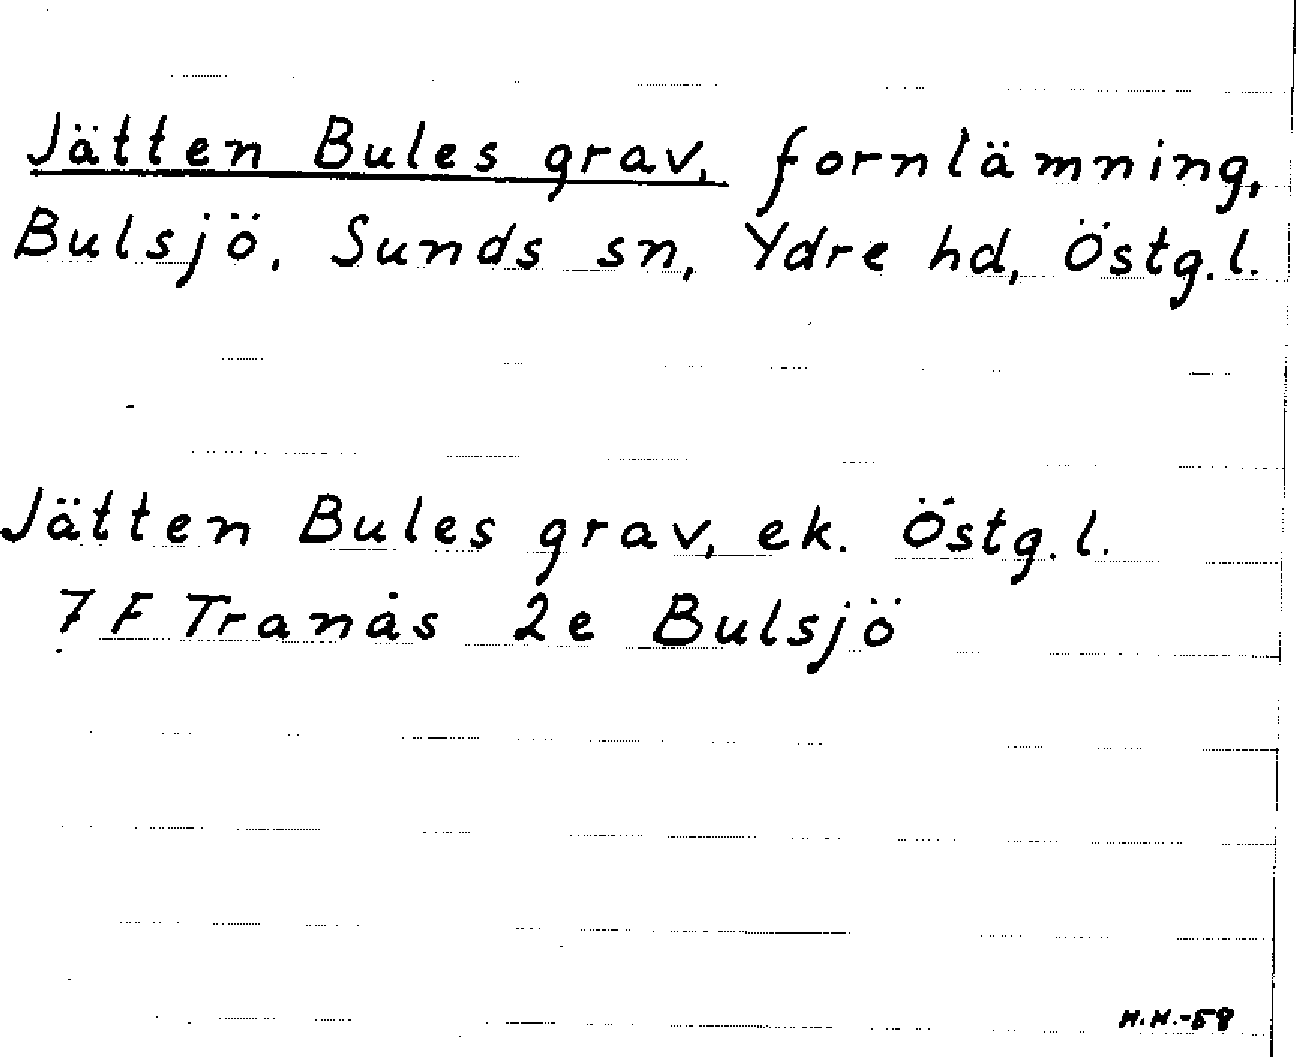 Jätten Bules grav, fornlämning,
Bulsjö, Sunds sn, Ydre hd, Östg.l.
Jätten Bules grav, ek. Östg.l.
7 F Tranås 2e Bulsjö
H.H.-58